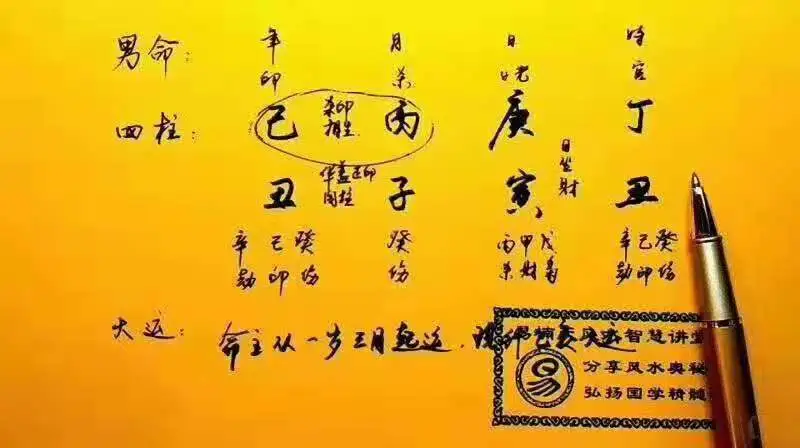 男命： 年 月 日 时
印 杀 官
四柱： 己 杀印 丙 庚 丁
相生
日坐财
华盖正印
同柱
丑 子 寅 丑
辛 己 癸 癸 丙 甲 戊 辛 己 癸
劫 印 伤 伤 杀 财 枭 劫 印 伤
大运： 命主从一步三月起运， 大运
智慧讲堂
易
分享风水奥秘
弘扬国学精髓